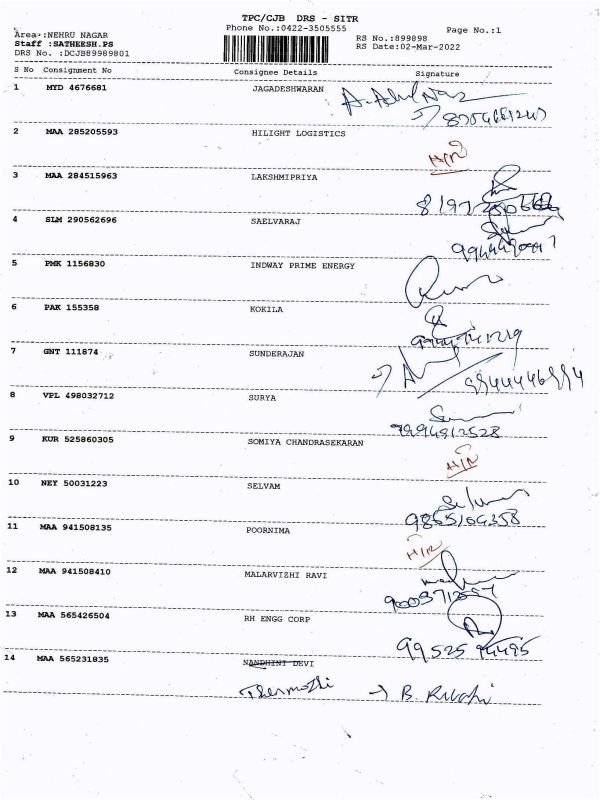 TPC/CJB DRS - SITR
Phone No.:0422-3505555
Page No.:1
Area :NEHRU NAGAR
RS No.:899898
Staff :SATHEESH.PS
RS Date:02-Mar-2022
DRS No. :DCJB89989801
S No Consignment No Consignee Details Signature
1 MYD 4676681 JAGADESHWARAN
2 MAA 285205593 HILIGHT LOGISTICS
H/R
3 MAA 284515963 LAKSHMIPRIYA
4 SLM 290562696 SAELVARAJ
5 PMK 1156830 INDWAY PRIME ENERGY
6 PAK 155358 KOKILA
7 GNT 111874 SUNDERAJAN
8 VPL 498032712 SURYA
9 KUR 525860305 SOMIYA CHANDRASEKARAN
10 NEY 50031223 SELVAM
9865164358
11 MAA 941508135 POORNIMA
12 MAA 941508410 MALARVIZHI RAVI
13 MAA 565426504 RH ENGG CORP
99525 94495
14 MAA 565231835 NANDHINI DEVI